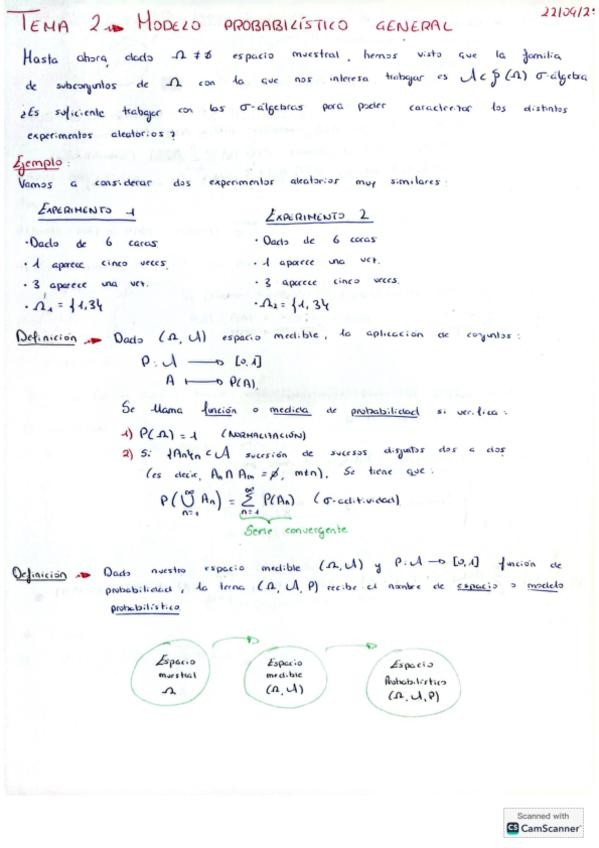 TEMA 2 → MODELO PROBABILÍSTICO GENERAL
22/04/2
Hasta ahora, dado Ω ≠ ∅ espacio muestral, hemos visto que la familia
de subconjuntos de Ω con la que nos interesa trabajar es A ⊂ P(Ω) σ-álgebra
¿Es suficiente trabajar con las σ-álgebras para poder caracterizar los distintos
experimentos aleatorios?
Ejemplo:
Vamos a considerar dos experimentos aleatorios muy similares:
EXPERIMENTO 1
· Dado de 6 caras
· 1 aparece cinco veces.
· 3 aparece una vez.
· Ω₁ = {1,3}
EXPERIMENTO 2
· Dado de 6 caras
· 1 aparece una vez.
· 3 aparece cinco veces.
· Ω₂ = {1,3}
Definición → Dado (Ω, A) espacio medible, la aplicación de conjuntos:
P: A → [0,1]
A ↦ P(A),
Se llama función o medida de probabilidad si verifica:
1) P(Ω) = 1 (NORMALIZACIÓN)
2) Si {An}n ⊂ A sucesión de sucesos disjuntos dos a dos
(es decir, An ∩ Am = ∅, m≠n). Se tiene que:
P(⋃ₙ₌₁^∞ An) = ∑ₙ₌₁^∞ P(An) (σ-aditividad)
Serie convergente
Definición → Dado nuestro espacio medible (Ω, A) y P: A → [0,1] función de
probabilidad, la terna (Ω, A, P) recibe el nombre de espacio o modelo
probabilístico.
Espacio
muestral
Ω
Espacio
medible
(Ω, A)
Espacio
Probabilístico
(Ω, A, P)
Scanned with
CS CamScanner